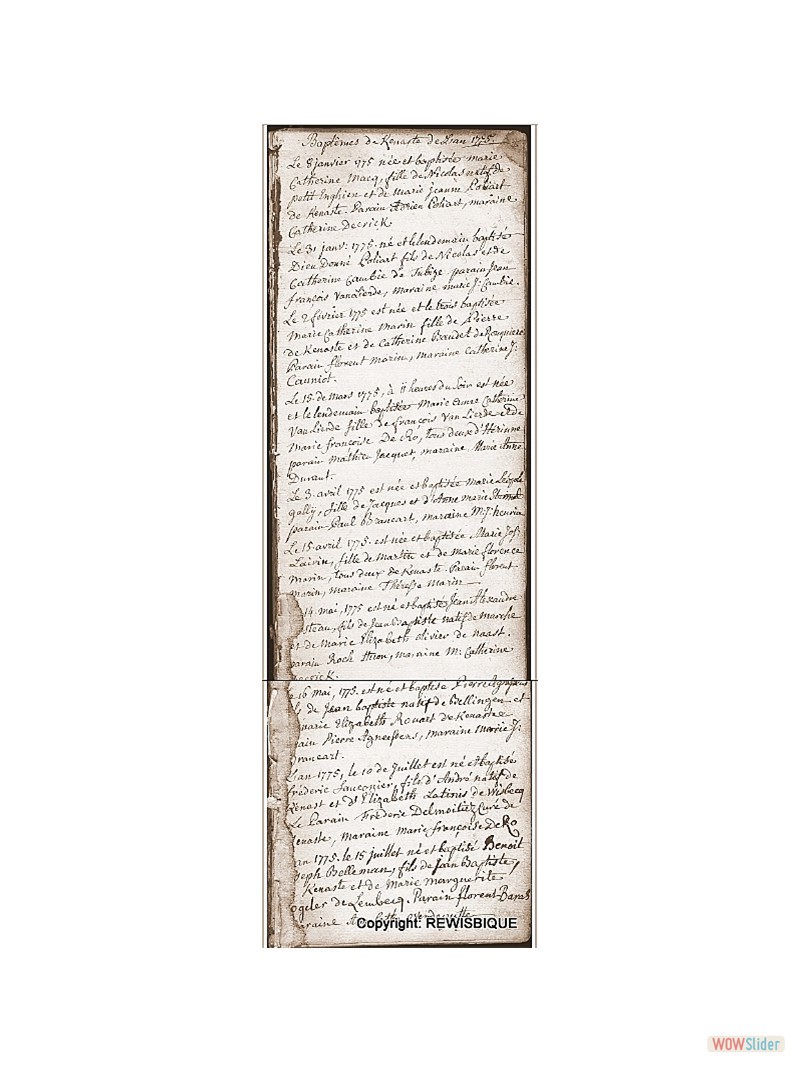 Baptêmes de Kenaste de L'an 1775.
Le 8 janvier 1775 née et baptisée marie
Catherine Macq, fille de Nicolas natif de
petit Enghien et de marie jeanne Poliart
de Kenaste. Parain Adrien Poliart, maraine
Catherine Derrick.
Le 31 janv: 1775. né et le lendemain baptisé
Dieu Donné Poliart fils de Nicolas et de
Catherine Cambie de Tubize parain Jean
françois VanLierde, maraine marie J: Cambie.
Le 2 février 1775 est née et le trois baptisée
Marie Catherine Marin fille de Pierre
de Kenaste et de Catherine Baudet de
Parain florent Marin, maraine Catherine J:
Le 15 de mars 1775, à 8 heures du Soir est née
et le lendemain baptisée Marie Catherine
Van Lierde fille de françois Van Lierde et de
Marie françoise De Ro, tous deux d'
parain Mathieu Jacquet, maraine Marie Anne
Durant.
Le 3. avril 1775 est née et baptisée marie
gally, fille de Jacques et d'Anne marie
parain Paul Brancart, maraine M: J: henria
Le 15. avril 1775. est née et baptisée Marie Jos:
fille de Martin et de marie florence
Marin, tous deux de Kenaste. Parain florent
Marin, maraine Thérèsse Marin
14. mai, 1775 est né et baptisé Jean Alexandre
fils de Jean Baptiste natif de marche
et de Marie Elizabeth olivier de naast.
parain Roch maraine M: Catherine
16 mai, 1775. est né et baptisé Pierre
de Jean baptiste natif de Bellingen et
marie Elizabeth Rouart de Kenaste
Pierre Agneessens, maraine Marie J:
L'an 1775, le 10 de Juillet est né et baptisé
fréderic fauconier, fils d'André natif de
Kenast et d'Elizabeth Latinis de Wisbecq
Le Parain Fréderic Delmoitiez Curé de
Kenaste, maraine marie françoise De Ro
1775. le 15 juillet né et baptisé Benoit
Joseph Belleman, fils de jean Baptiste,
Kenaste et de Marie marguerite
de Lembecq. Parain florent
maraine
Copyright: REWISBIQUE
WOWSlider